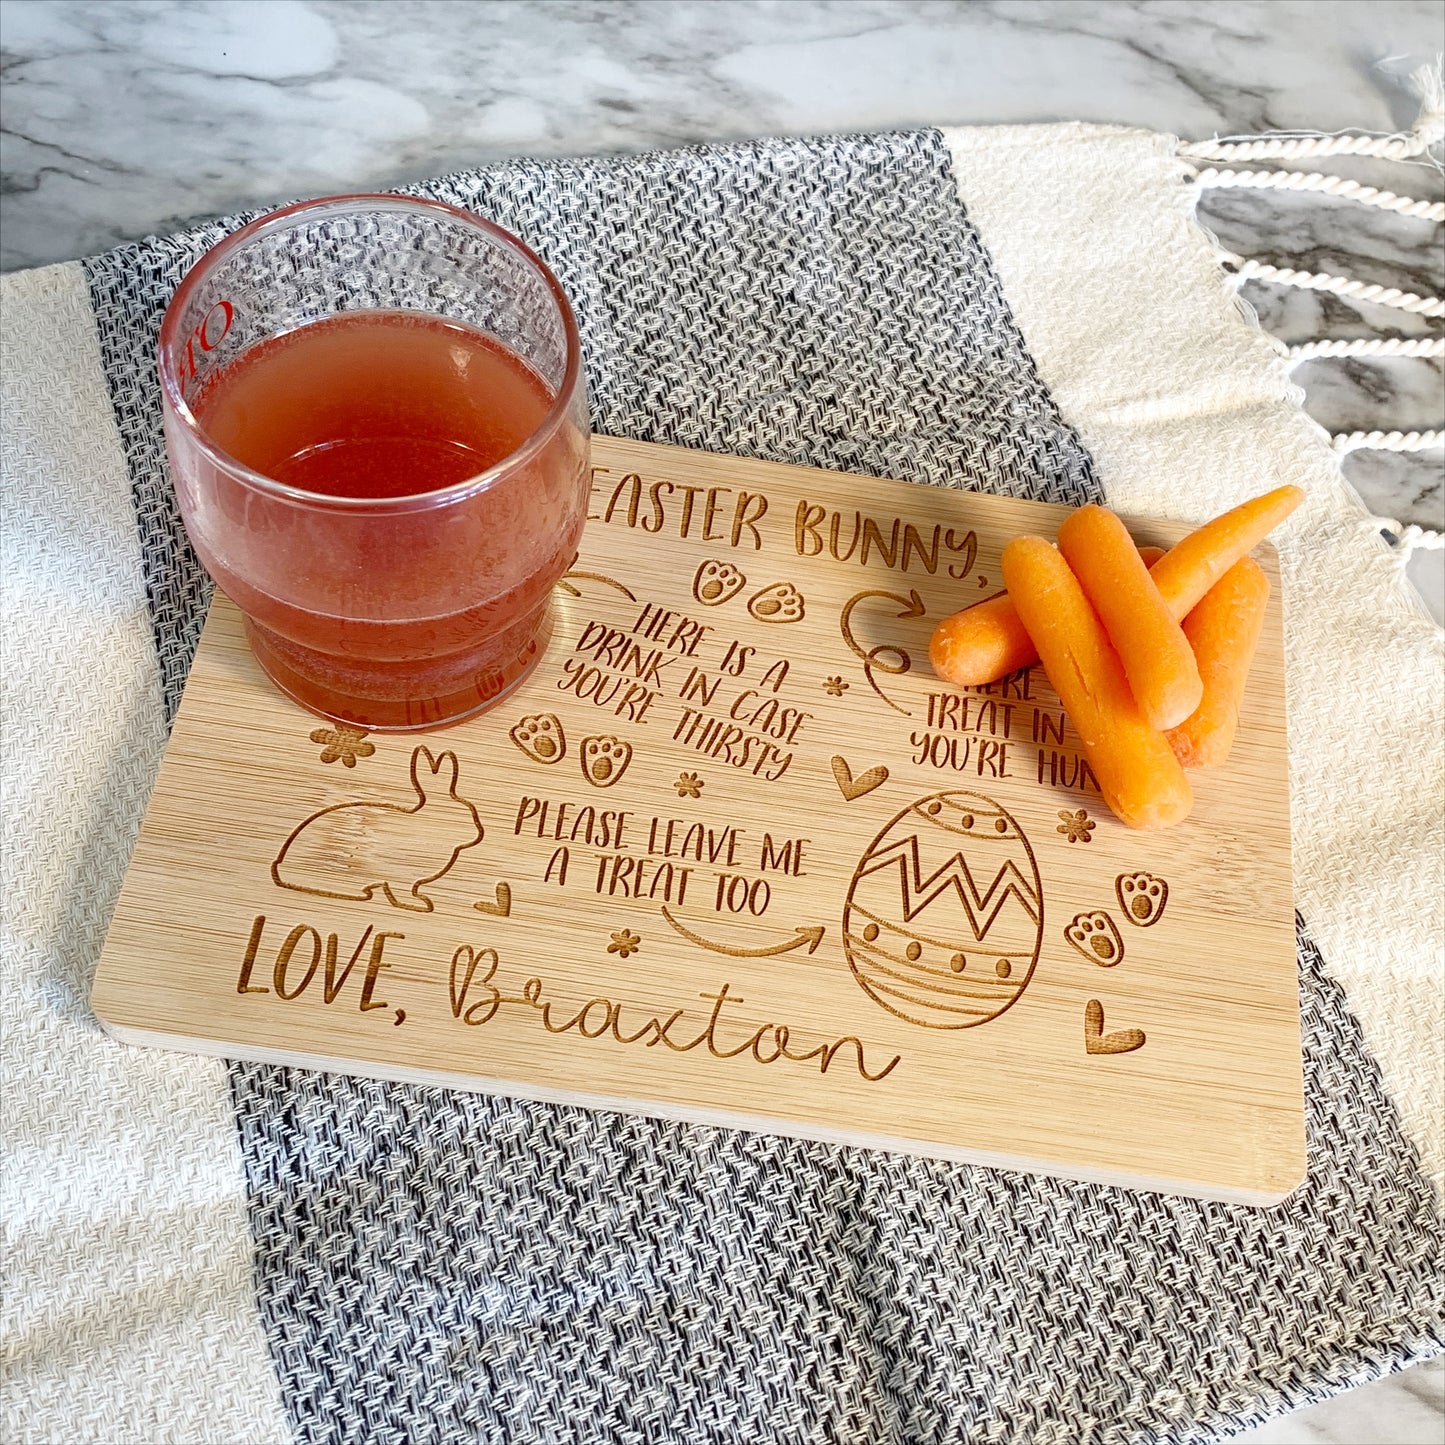 EASTER BUNNY,
HERE IS A
DRINK IN CASE
YOU'RE THIRSTY
HERE
TREAT IN
YOU'RE
PLEASE LEAVE ME
A TREAT TOO
LOVE, Braxton